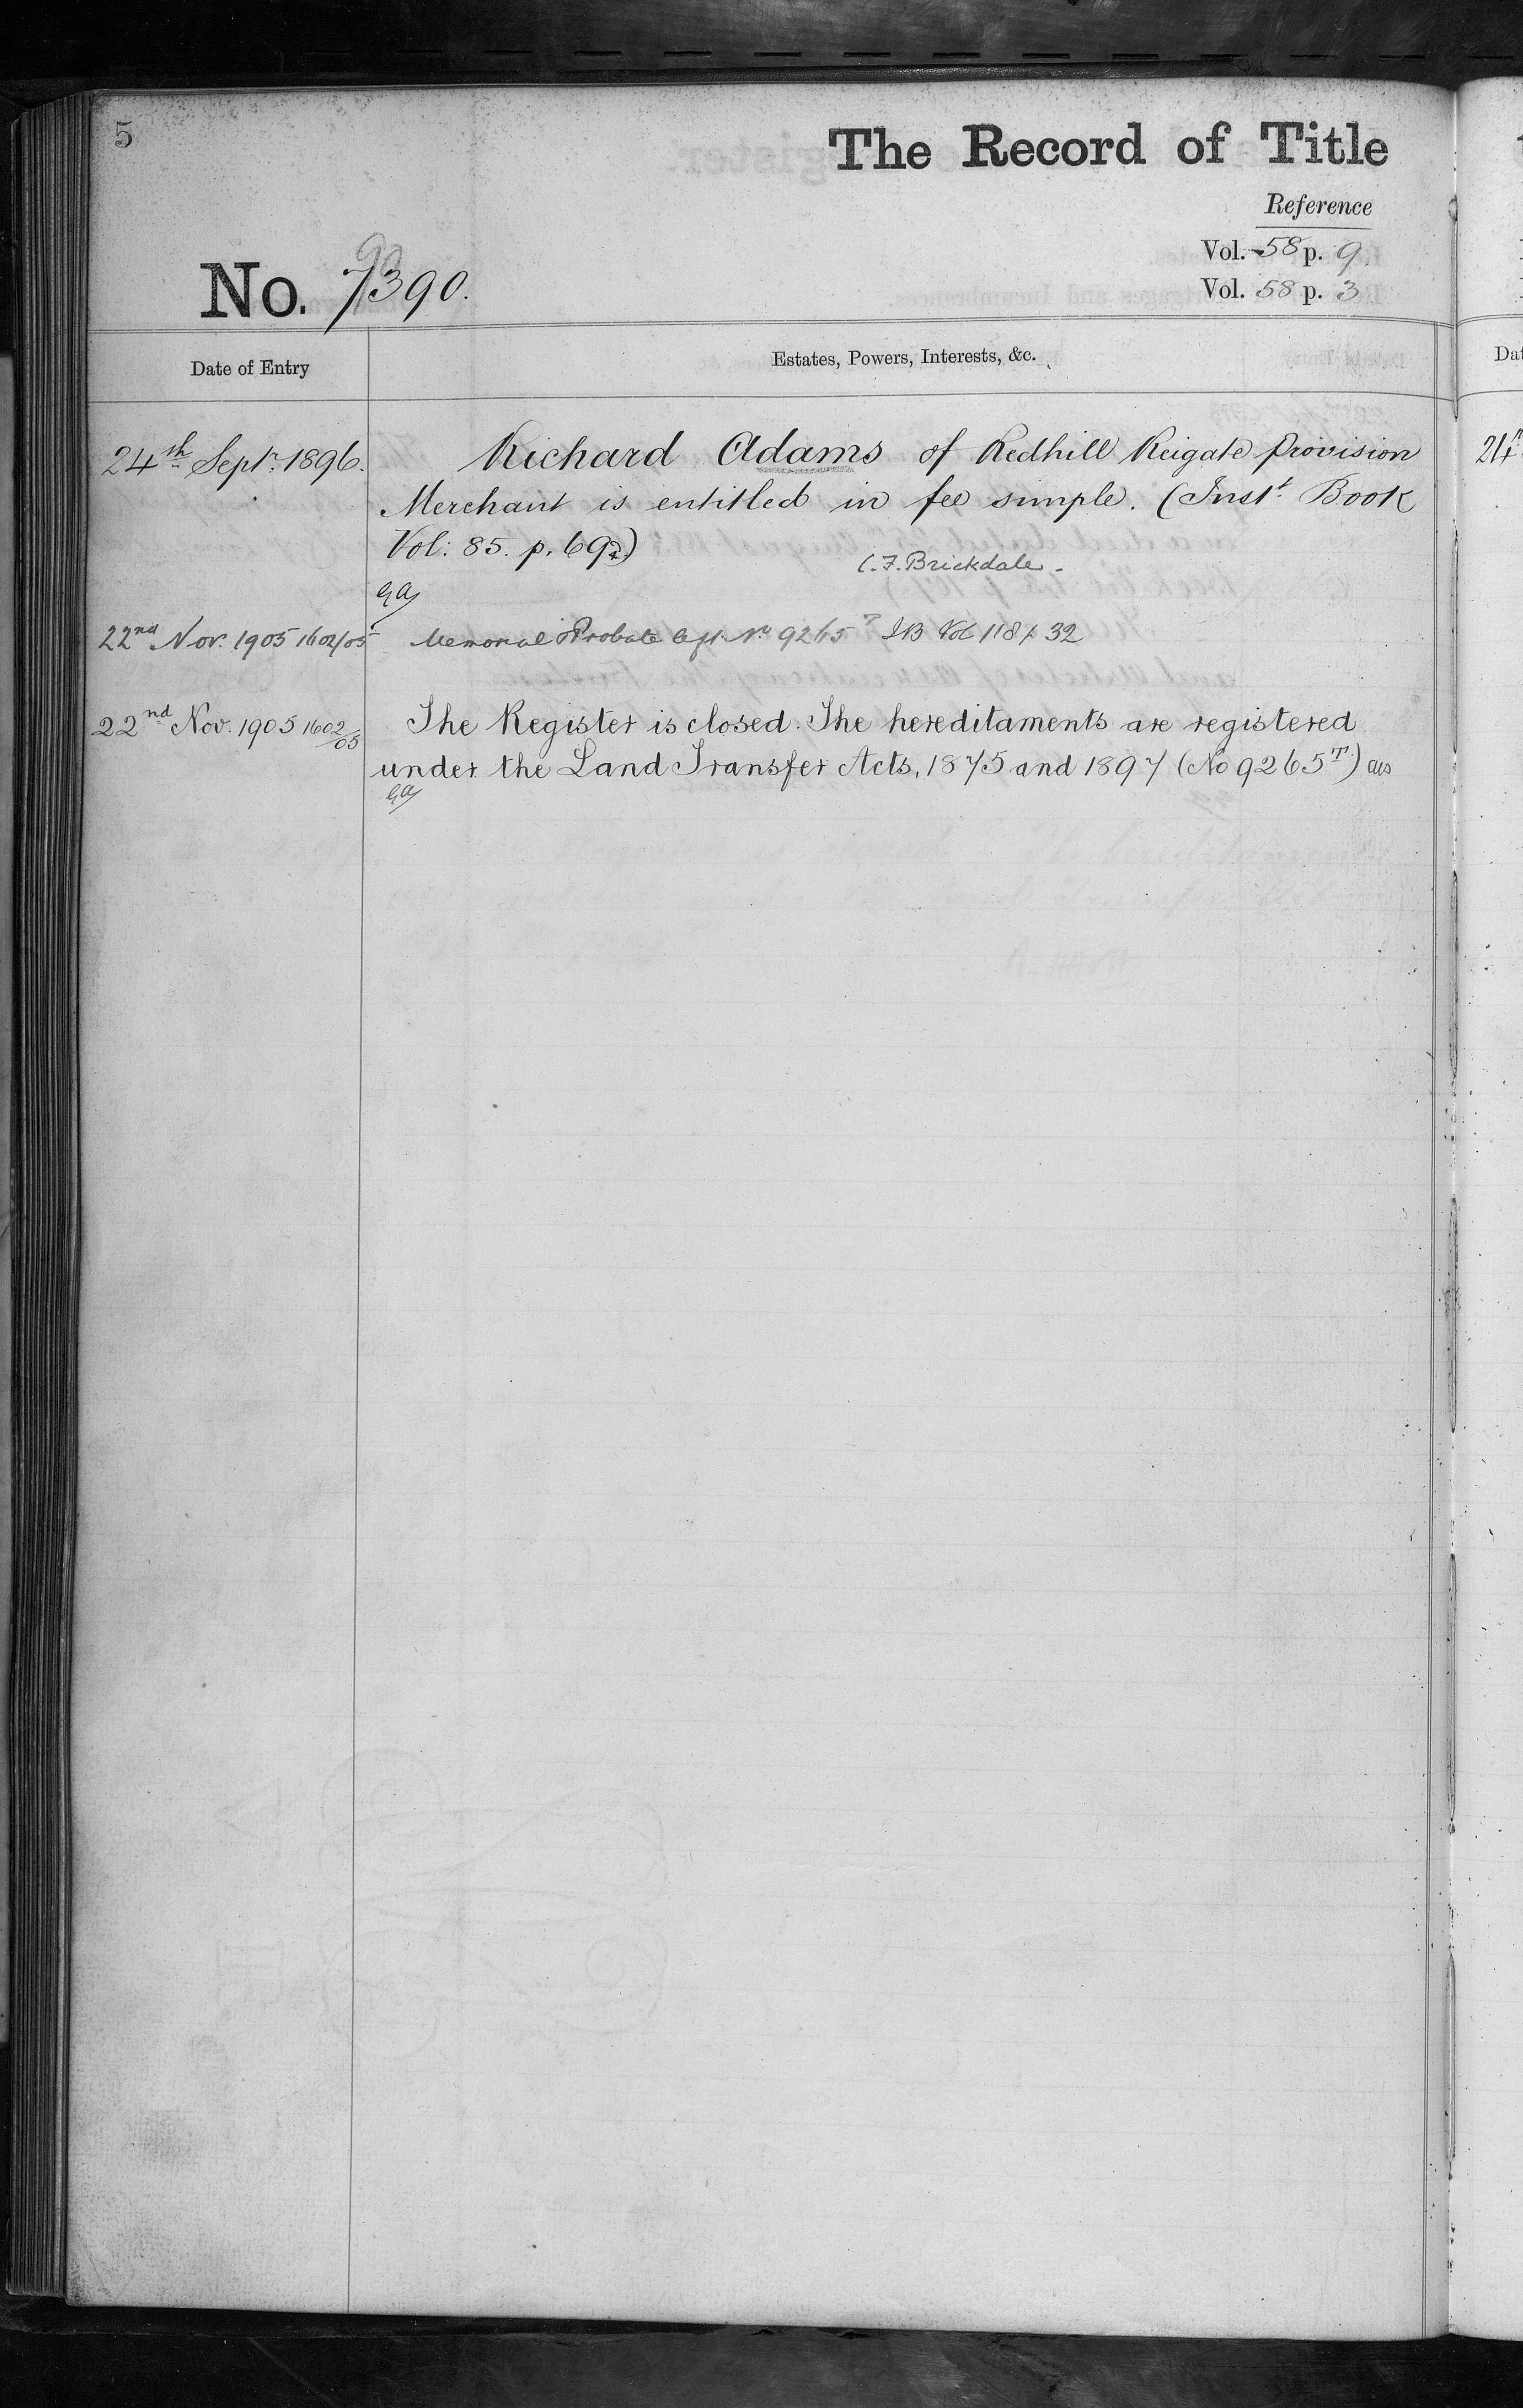 5
The Record of Title
Reference
Vol. 58 p. 9.
Vol. 58 p. 3
No. 7390.
Date of Entry
Estates, Powers, Interests, &c.
24th Septr. 1896.
Richard Adams of Redhill Reigate Provision
Merchant is entitled in fee simple. (Inst. Book
Vol: 85. p. 692)
C.F. Brickdale.
22nd Nov. 1905 1602/05
Memorial Probate No 9265T IB Vol 118 p. 32
22nd Nov. 1905 1602/05
The Register is closed. The hereditaments are registered
under the Land Transfer Acts, 1875 and 1897 (No 9265T.)
Dat
24